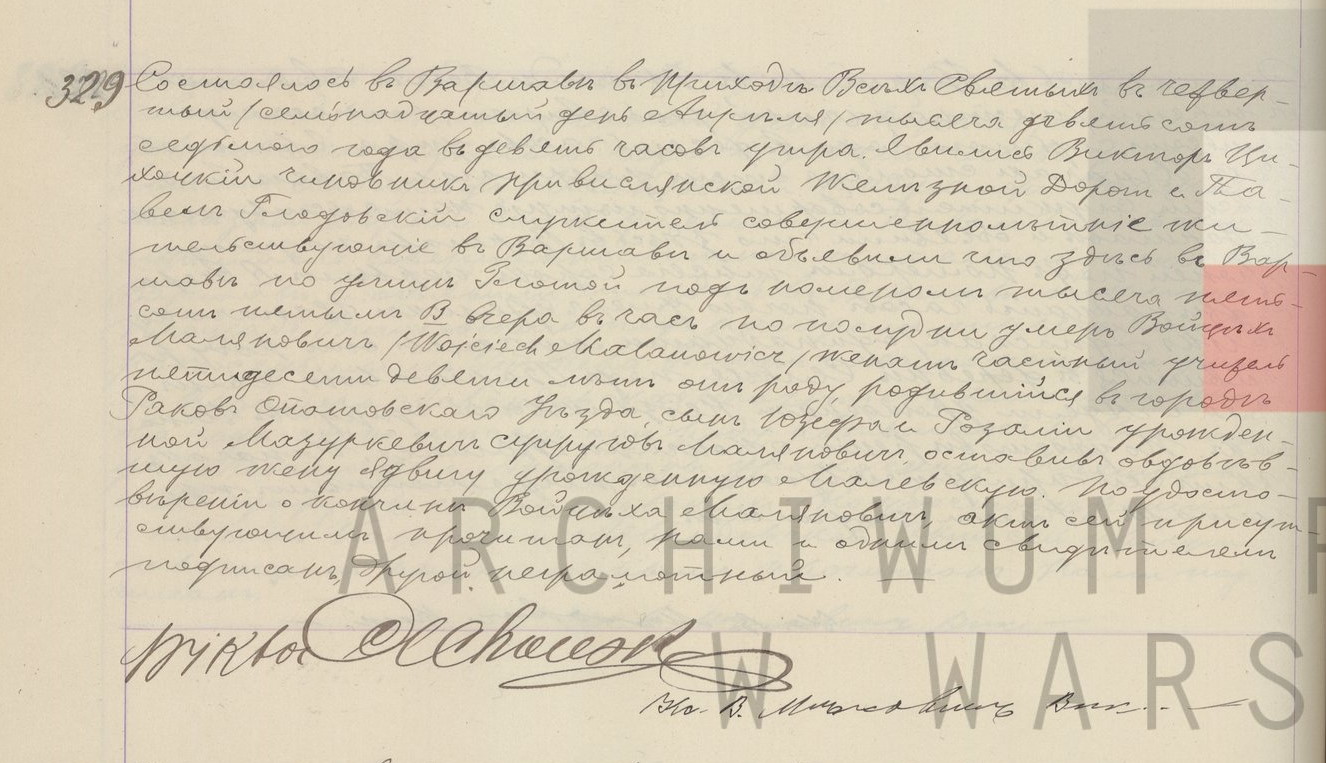 329
Состоялось въ Варшавѣ въ приходѣ Всѣхъ Святыхъ въ четвер-
тый /семнадцатый день Апрѣля/ тысяча девятьсотъ
седьмого года въ девять часовъ утра. Явились Викторъ Ци-
хоцкій чиновникъ Привислянской Желѣзной Дороги и Па-
велъ Глодовскій служитель совершеннолѣтніе жи-
тельствующіе въ Варшавѣ и объявили что здѣсь въ Вар-
шавѣ по улицѣ Злотой подъ номеромъ тысяча пять-
сотъ пятымъ В вчера въ часъ по полудни умеръ Войцѣхъ
Маляновичъ /Wojciech Malanowicz/ женатъ частный учитель
пятидесяти девяти лѣтъ отъ роду, родившійся въ городѣ
Раковъ Опатовскаго Уѣзда, сынъ Юзефа и Розаліи урожден-
ной Мазуркевичъ супруговъ Маляновичъ, оставивъ овдовѣв-
шую жену Ядвигу урожденную Малевскую. По удосто-
вѣреніи о кончинѣ Войцѣха Маляновичъ, актъ сей присут-
ствующимъ прочитанъ, нами и однимъ свидѣтелемъ
подписанъ, другой неграмотный.
Wiktor Cichocki
Кс. В.
ARCHIWUM
WARS